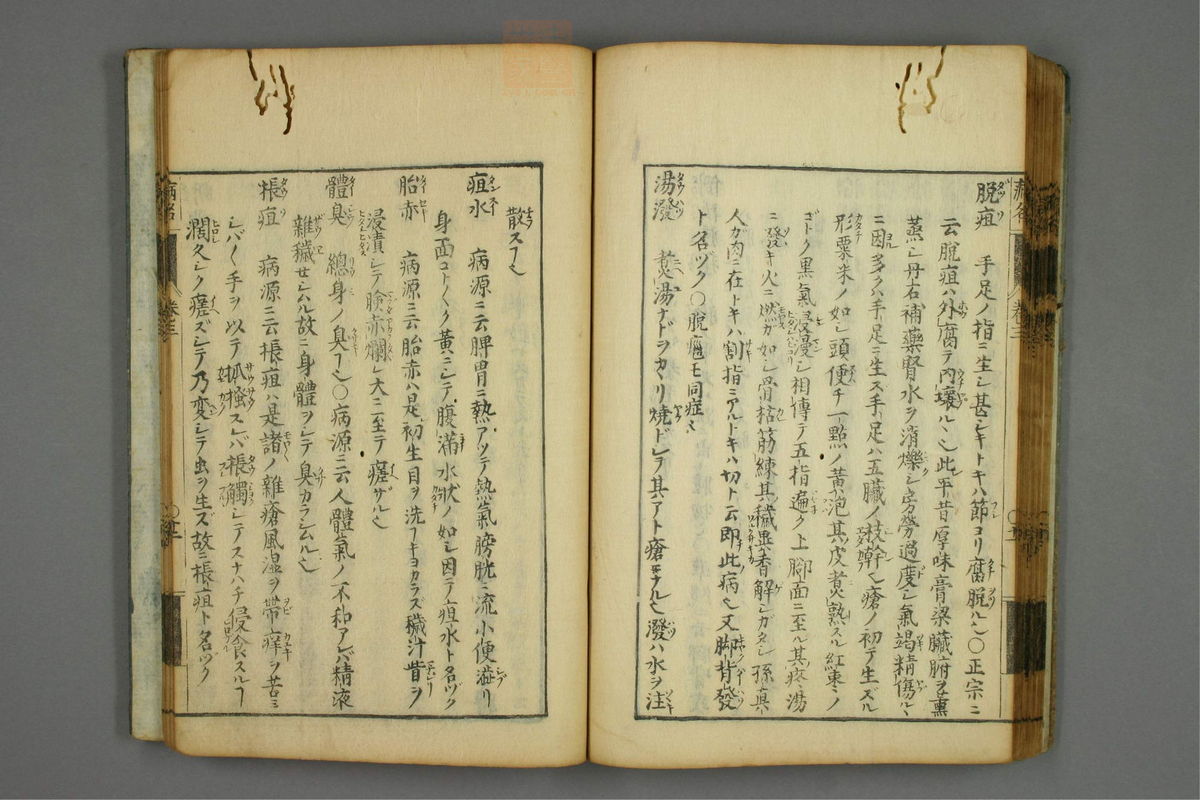 脱疽　手足ノ指ニ生シ甚シキトキハ節ヨリ腐脱ル也〇正宗ニ
云脱疽ハ外腐テ内壊ル也此平昔厚味膏粱臓腑ヲ薫
蒸シ丹石補藥腎水ヲ消爍シ房勞過度シ氣竭精傷ル
ニ因多クハ手足ニ生ス手足ハ五臓ノ枝幹也瘡ノ初テ生ズル
形粟米ノ如シ頭便チ一點ノ黄泡其皮煮熟スル紅棗ノ
ゴトク黒氣浸漫シ相傳テ五指遍ク上脚面ニ至ル其疼湯
ニ發キ火ニ燃カ如シ骨枯筋練其穢異香解シガタシ孫真
人カ肉ニ在トキハ割指ニアルトキハ切ト云即此病也又脚背發
ト名ツク〇脱疽モ同症也
湯潑　煑湯ナドヲカヽリ焼ドシテ其アト瘡トナル也潑ハ水ヲ注
散スフ也
疽水　病源ニ云脾胃ニ熱アツテ熱氣膀胱ニ流小便澁リ
身面コト〱ク黄ニシテ腹滿水状ノ如シ因テ疸水ト名ヅク
胎赤　病源ニ云胎赤ハ是初生目ヲ洗フキヨカラズ穢汁眥ヲ
浸漬シテ瞼赤爛シ大ニ至テ瘥ザル也
體臭　總身ノ臭フ也〇病源ニ云人體氣ノ不和アレバ精液
雜穢セシムル故ニ身體ヲシテ臭カラシムル也
棖疽　病源ニ云棖疽ハ是諸ノ雜瘡風湿ヲ帯ヒ痒ヲ苦ミ
シバ〱手ヲ以テ抓搔スレバ棖觸シテスナハチ侵食スルフ
濶久シク瘥ズシテ乃変シテ虫ヲ生ズ故ニ棖疽ト名ヅク
病名
卷三